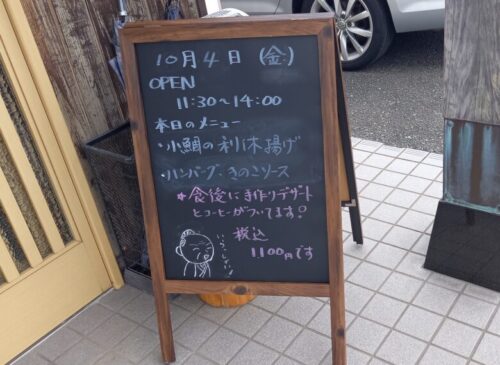 10月4日(金)
OPEN
11:30〜14:00
本日のメニュー
・小鯛の利休揚げ
・ハンバーグ・きのこソース
*食後に手作りデザート
とコーヒーがついてます!
税込
1100円です
いらっしゃい!